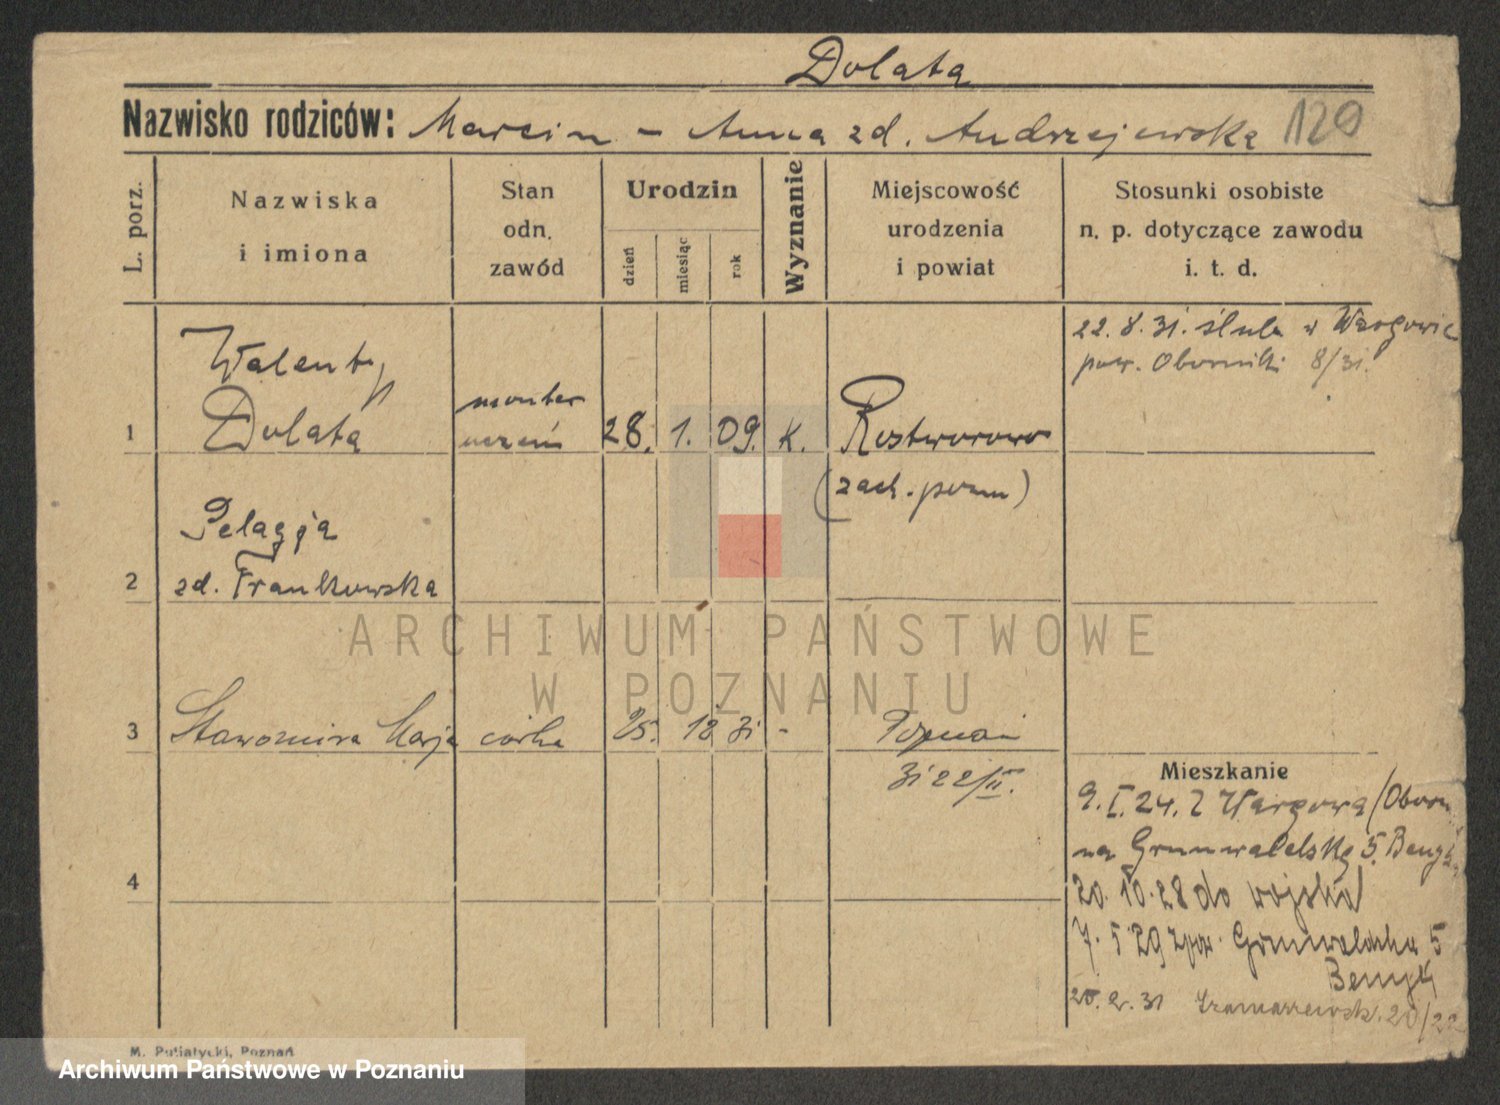 Dolata
Nazwisko rodziców: Marcin - Anna zd. Andrzejewska 120
L. porz.
Nazwiska
i imiona
Stan
odn.
zawód
Urodzin
dzień
miesiąc
rok
Wyznanie
Miejscowość
urodzenia
i powiat
Stosunki osobiste
n. p. dotyczące zawodu
i. t. d.
22. 8. 31. ślub w
pow. Oborniki 8/31.
Walenty
1 Dolata
monter
uczeń
28. 1. 09. k. Rostworowo
(zach. pozn)
Pelagja
2 zd. Frankowska
3 Sławomira Marja córka 25. 12 31 - Poznań
31 22/II.
4
Mieszkanie
9. I. 24. Z Wargowa (Oborn
na Grunwaldską 5.
20. 10. 28 do wojska
7. 5 29 Grunwaldzka 5
20. 2. 31
20/22
M. Putiatycki, Poznań
ARCHIWUM PAŃSTWOWE
W POZNANIU
Archiwum Państwowe w Poznaniu